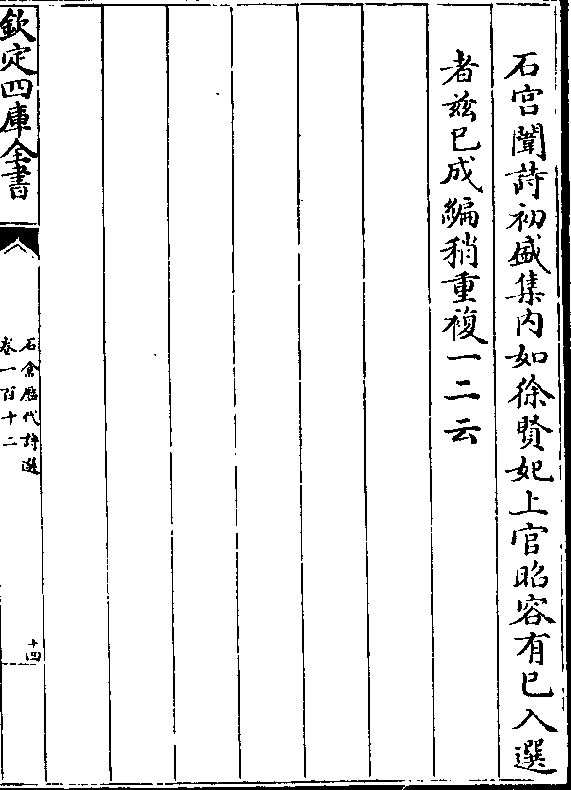 石宫闈詩初盛集内如徐賢妃上官昭容有已入選
者兹已成編稍重複一二云
欽定四庫全書
石倉歷代詩選
卷一百十二
十四